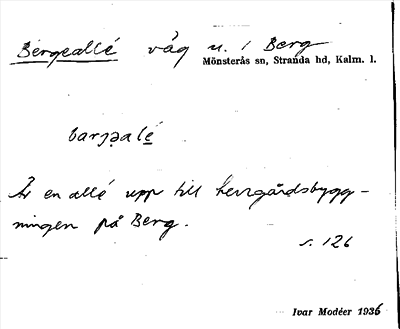 Bergeallé väg u. / Berg
Mönsterås sn, Stranda hd, Kalm. l.
barjəalé
Är en allé upp till herrgårdsbygg-
ningen på Berg.
s. 126
Ivar Modéer 1936